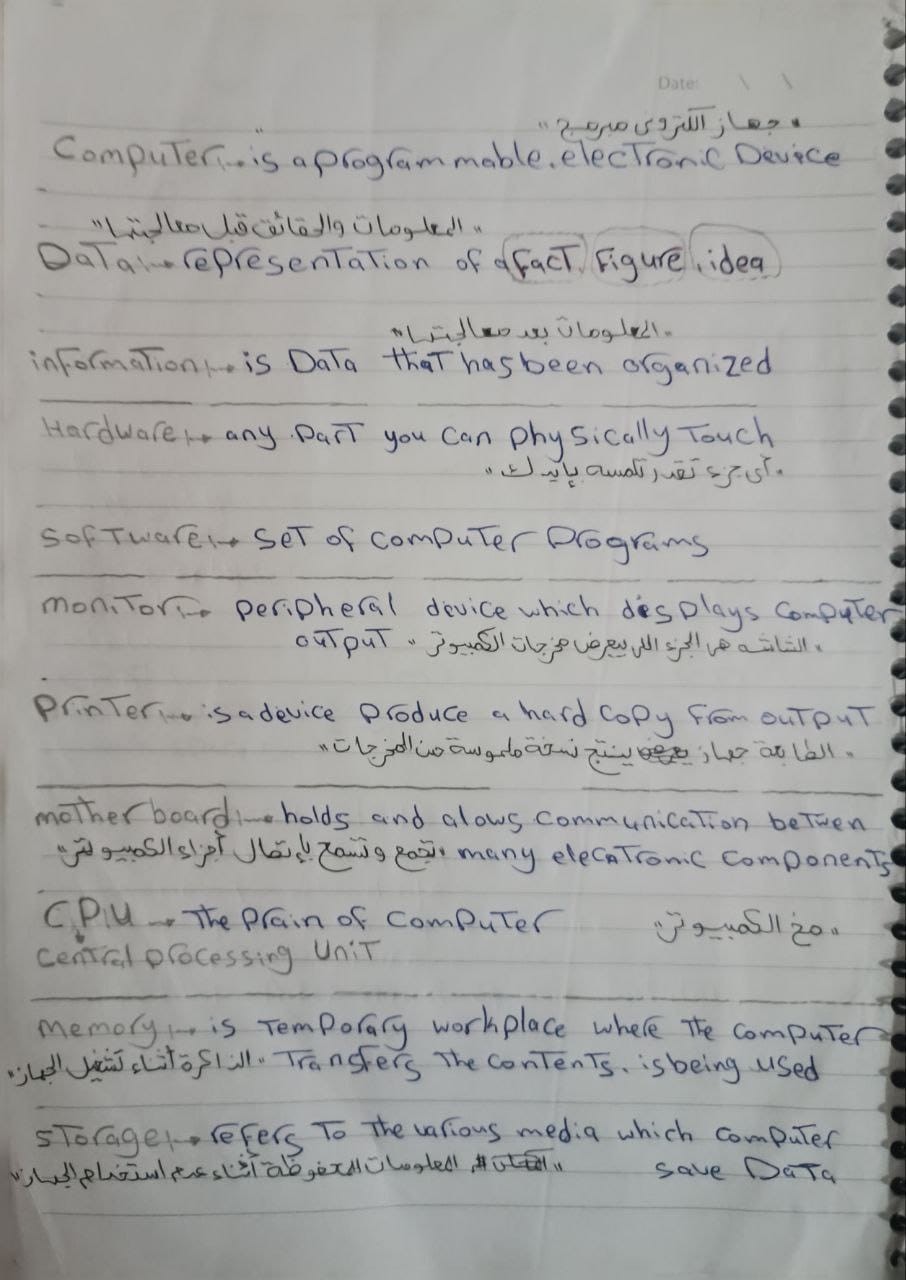 Date: \ \
"جهاز الكتروني مبرمج"
Computer:→ is a programmable. electronic Device
"المعلومات والحقائق قبل معالجتها"
Data:→ representation of a fact, figure, idea
"المعلومات بعد معالجتها"
information:→ is Data that has been organized
Hardware:→ any part you can physically touch
"أى جزء تقدر تلمسه بإيدك"
software:→ set of computer programs
monitor:→ peripheral device which displays computer
output "الشاشه هى الجزء اللى بيعرض مخرجات الكمبيوتر"
printer:→ is a device produce a hard copy from output
"الطابعة جهاز ينتج نسخة ملموسة من المخرجات"
motherboard:→ holds and alows communication betwen
many elecatronic components "تجمع وتسمح بإتصال أجزاء الكمبيوتر"
C.P.U → The prain of computer "مخ الكمبيوتر"
central processing Unit
memory:→ is Temporary workplace where the computer
Transfers the contents. is being used "الذاكرة أثناء تشغيل الجهاز"
storage:→ refers to the various media which computer
save Data "المعلومات المحفوظة أثناء عدم استخدام الجهاز"